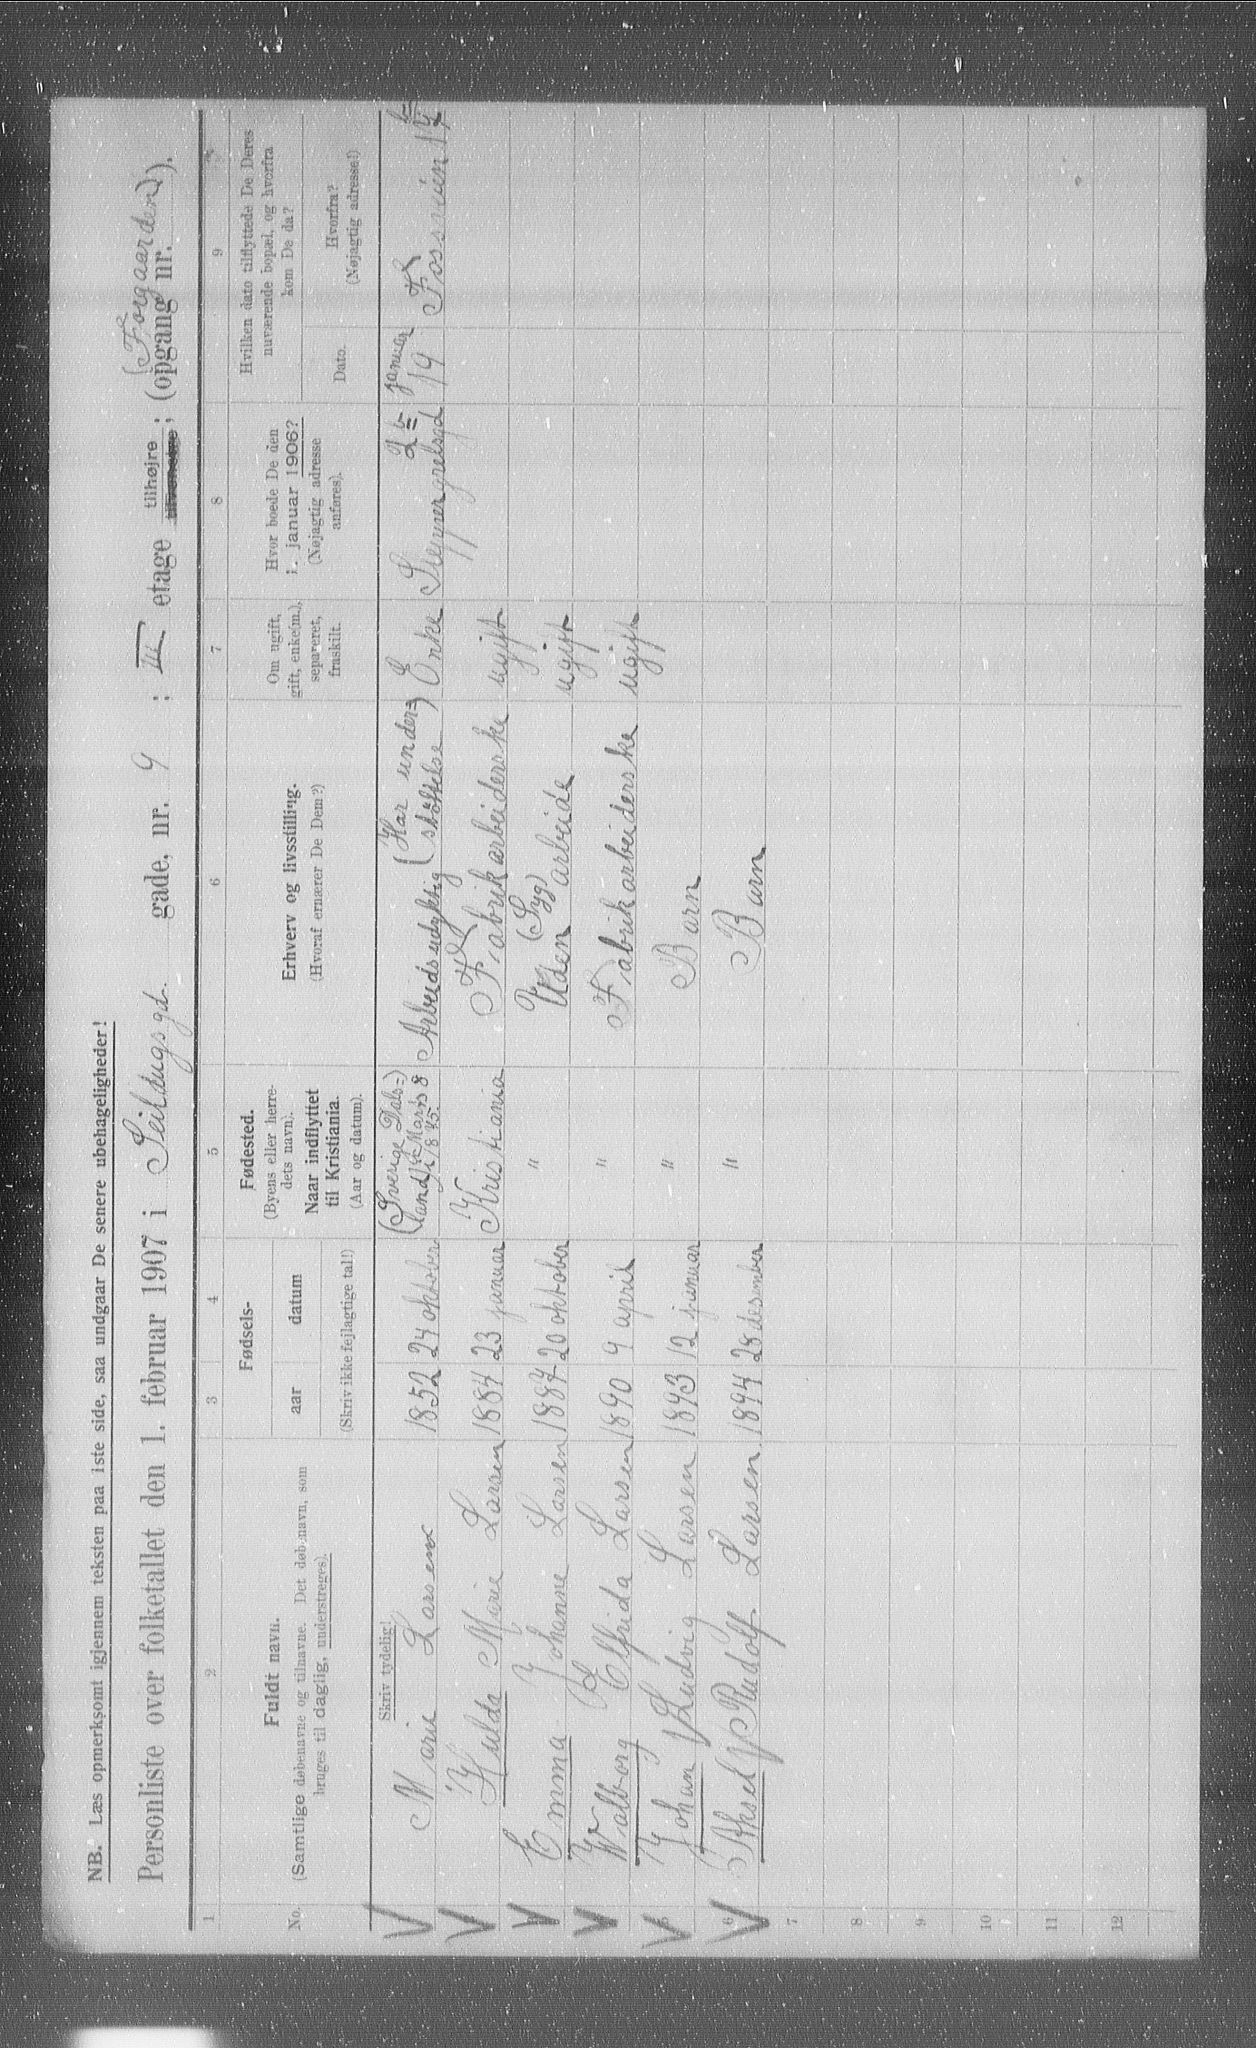 NB. Læs opmerksomt igjennem teksten paa 1ste side, saa undgaar De senere ubehageligheder!
Personliste over folketallet den 1. februar 1907 i Seildugsgd. gade, nr. 9 ; III etage tilhøjre ; (opgang nr. (Forgaarden) ).
1 2 3 4 5 6 7 8 9
No.
Fuldt navn.
(Samtlige døbenavne og tilnavne. Det døbenavn, som
bruges til daglig, understreges).
Fødsels-
aar datum
(Skriv ikke fejlagtige tal!)
Fødested.
(Byens eller herre-
dets navn).
Naar indflyttet
til Kristiania.
(Aar og datum).
Erhverv og livsstilling.
(Hvoraf ernærer De Dem?)
Om ugift,
gift, enke(m.),
separeret,
fraskilt.
Hvor boede De den
1. januar 1906?
(Nøjagtig adresse
anføres).
Hvilken dato tilflyttede De Deres
nuværende bopæl, og hvorfra
kom De da?
Dato.
Hvorfra?
(Nøjagtig adresse!)
Skriv tydelig!
Marie Larsen 1852 24 oktober (Sverige Dals=) land) Marts 8 Arbeidsudyktig (Har under=) (støttelse) Enke Seyppergrelsgd januar 14 Fossveien
Hulda Marie Larsen 1884 23 januar Kristiania Fabrikarbeiderske ugift
Emma Johanne Larsen 1887 20 oktober " Uden (Syg) arbeide ugift
Walborg Elfrida Larsen 1890 9 april " Fabrikarbeiderske ugift
5 Johan Ludvig Larsen 1893 12 januar " Barn
6 Aksel Rudolf Larsen. 1894 28 desember " Barn
7
8
9
10
11
12